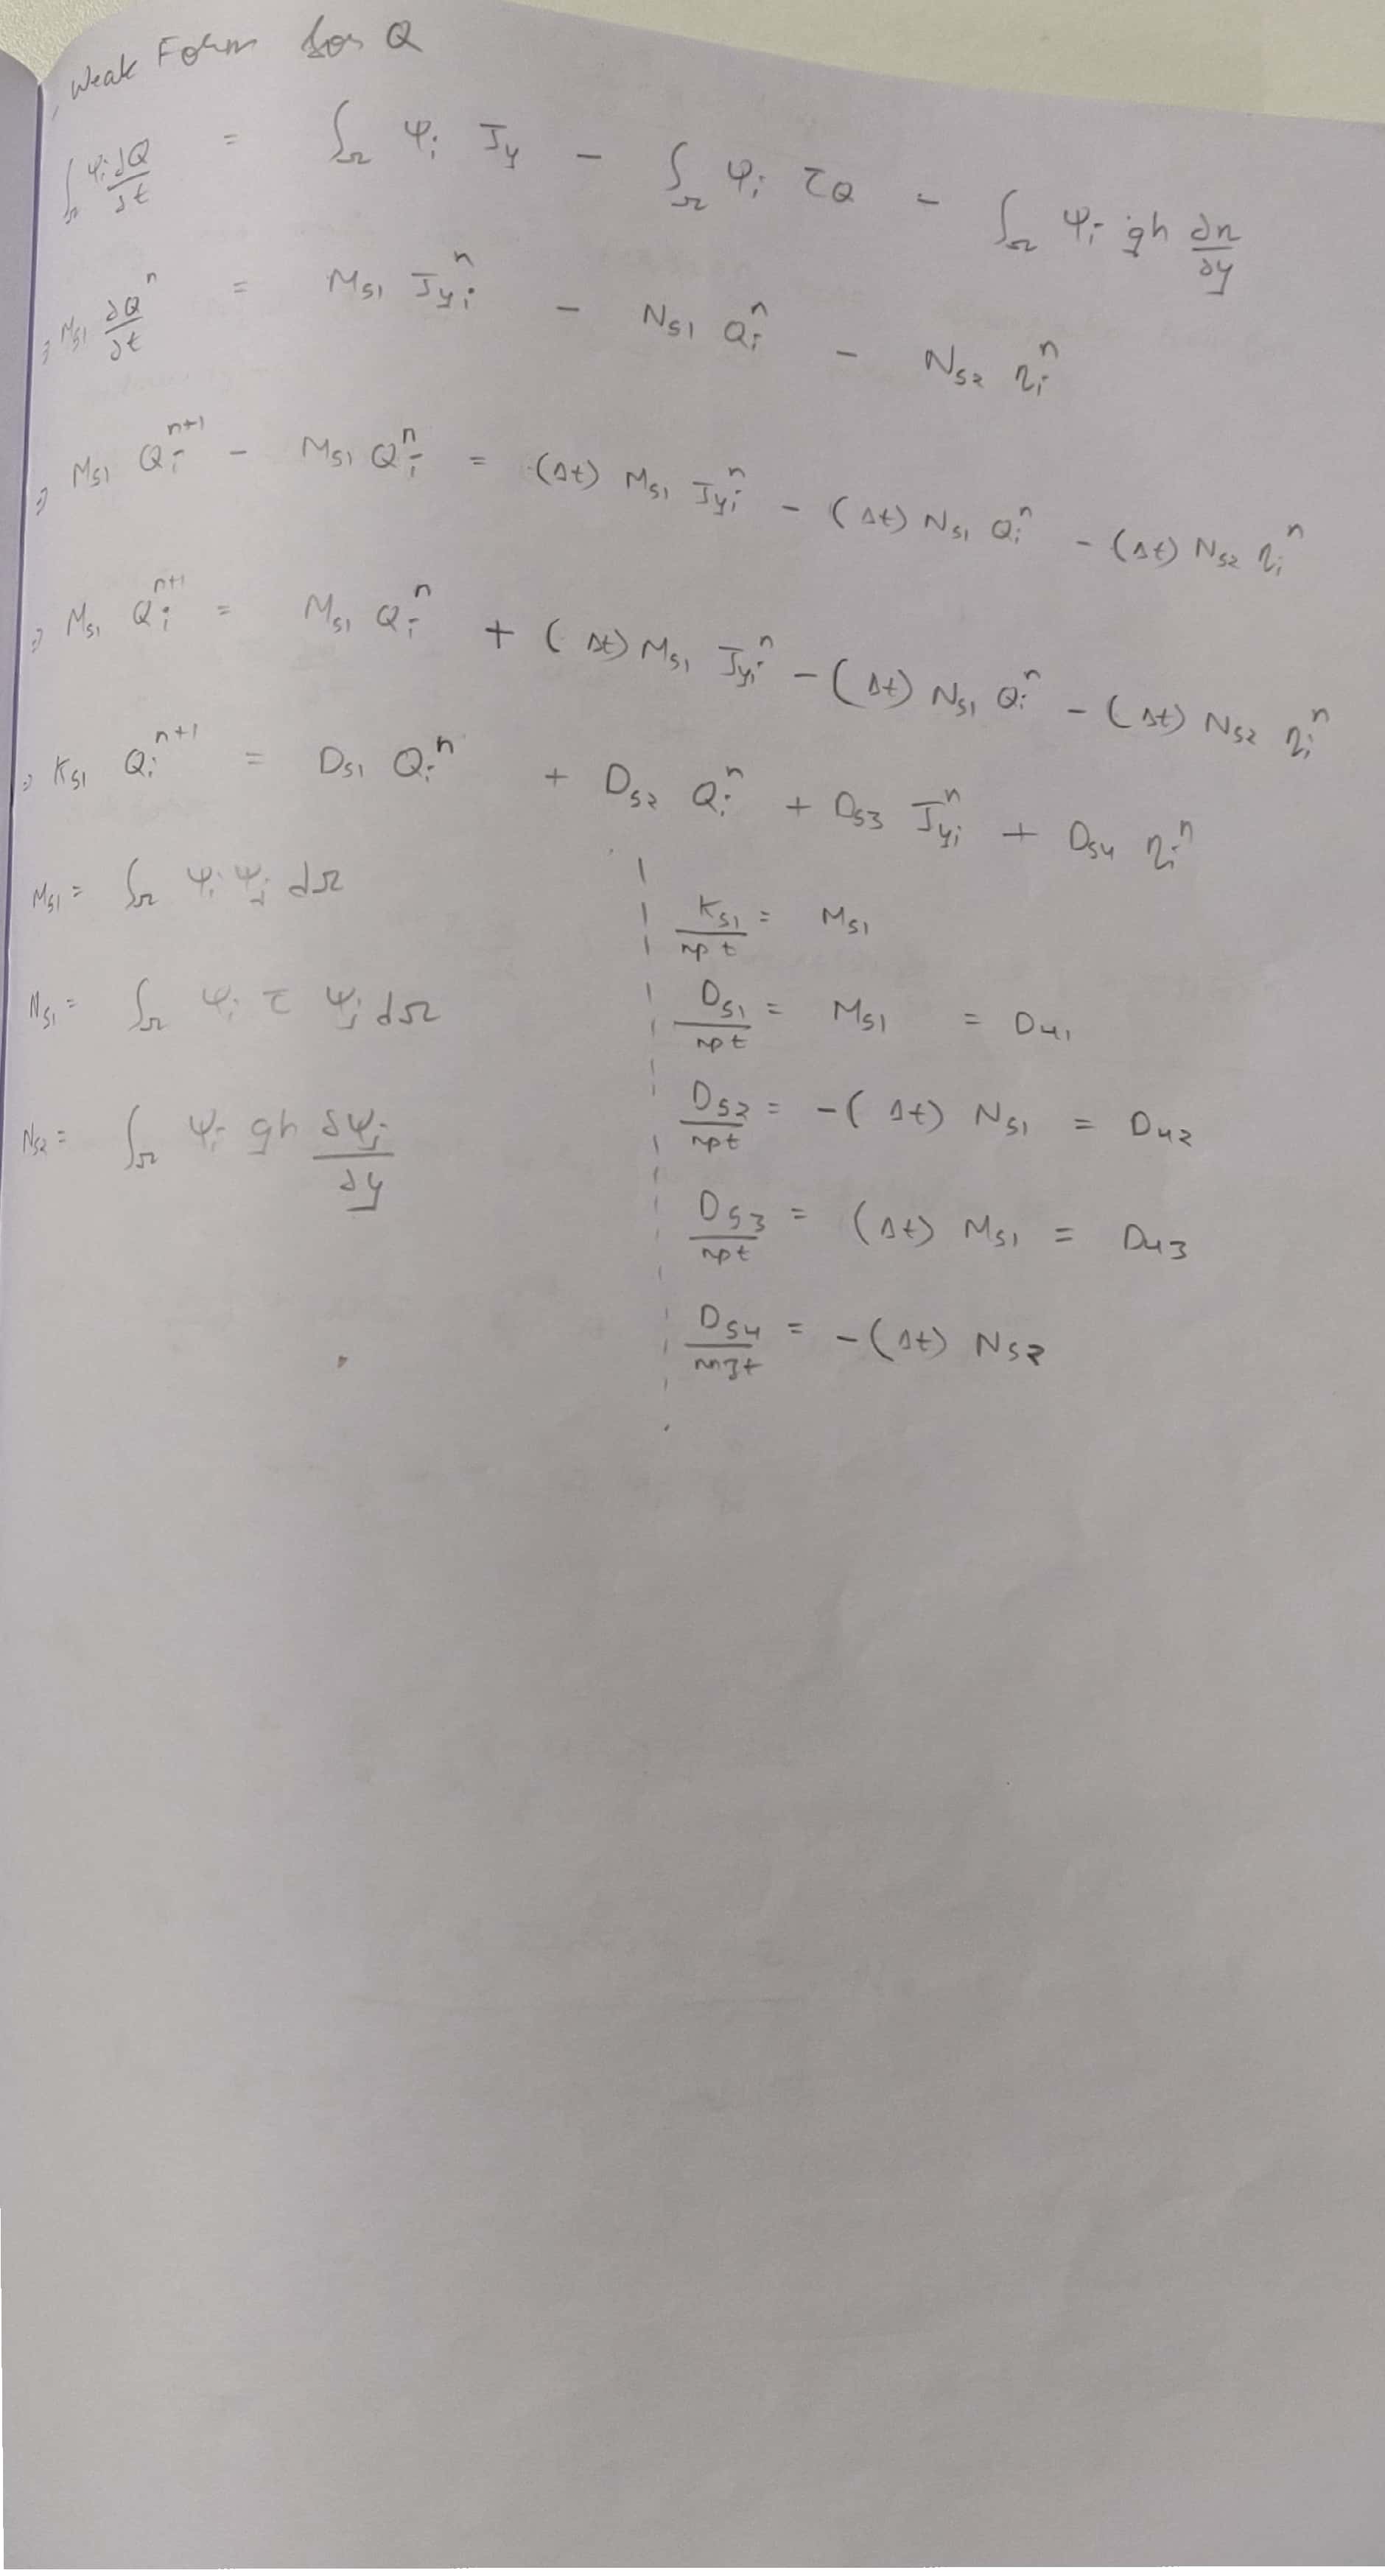 Weak Form for Q
∫_Ω φ_i ∂Q/∂t = ∫_Ω φ_i J_y − ∫_Ω φ_i τQ − ∫_Ω φ_i gh ∂η/∂y
⇒ M_51 ∂Q^n/∂t = M_51 J_yi^n − N_51 Q_i^n − N_52 η_i^n
⇒ M_51 Q_i^{n+1} − M_51 Q_i^n = (Δt) M_51 J_yi^n − (Δt) N_51 Q_i^n − (Δt) N_52 η_i^n
⇒ M_51 Q_i^{n+1} = M_51 Q_i^n + (Δt) M_51 J_yi^n − (Δt) N_51 Q_i^n − (Δt) N_52 η_i^n
⇒ K_51 Q_i^{n+1} = D_51 Q_i^n + D_52 Q_i^n + D_53 J_yi^n + D_54 η_i^n
M_51 = ∫_Ω φ_i φ_j dΩ
N_51 = ∫_Ω φ_i τ φ_j dΩ
N_52 = ∫_Ω φ_i gh ∂φ_j/∂y
K_51/npt = M_51
D_51/npt = M_51 = D_41
D_52/npt = −(Δt) N_51 = D_42
D_53/npt = (Δt) M_51 = D_43
D_54 = −(Δt) N_52